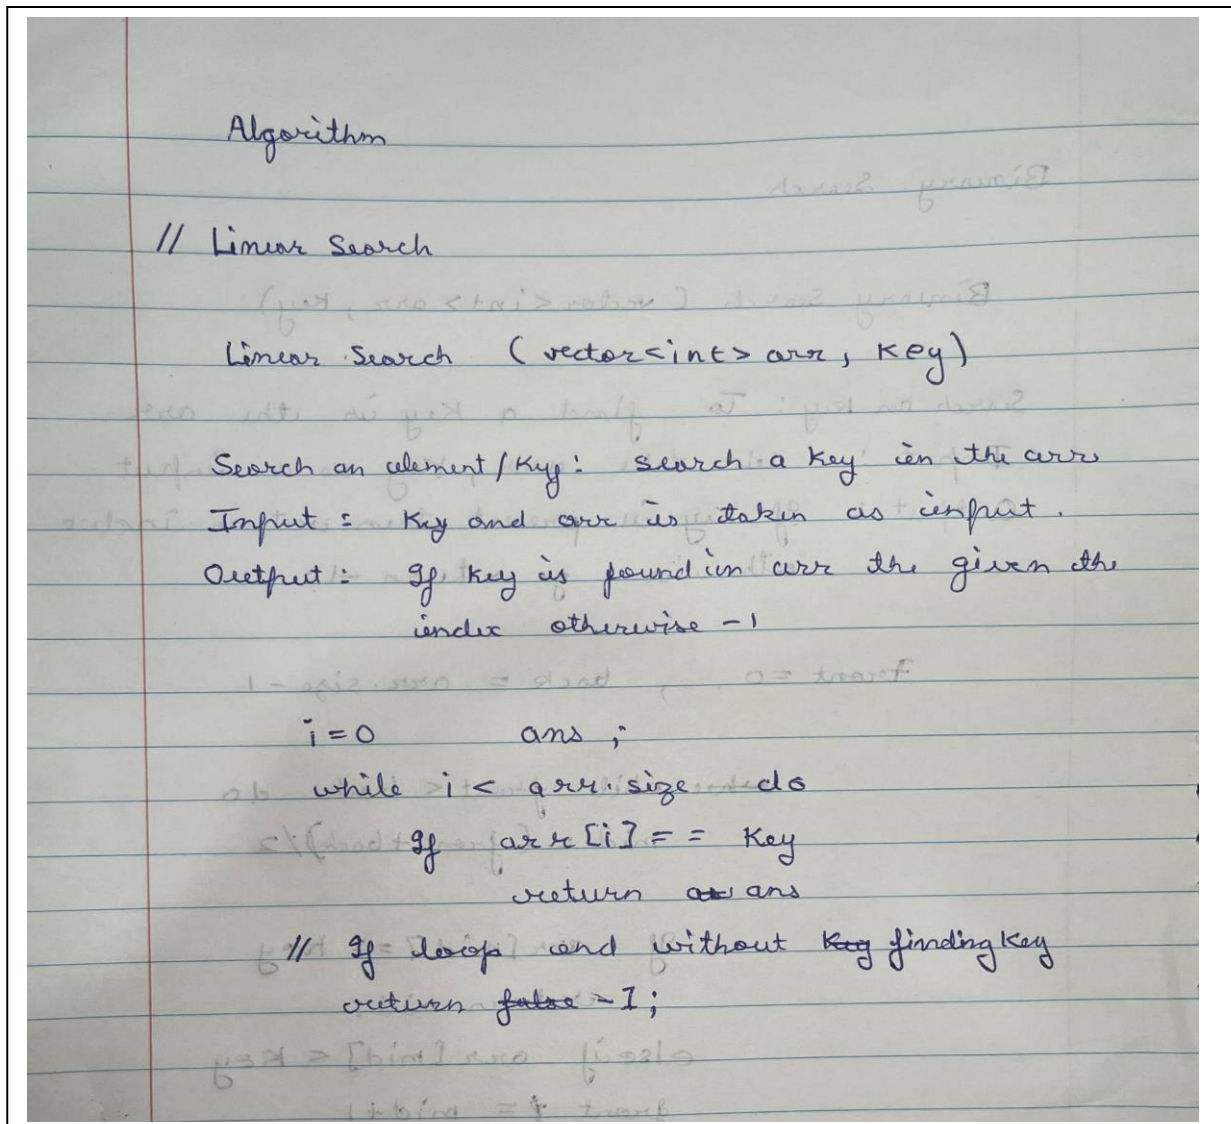 Algorithm
// Linear Search
Linear Search (vector<int> arr, Key)
Search an element/Key: search a key in the arr
Input: Key and arr is taken as input.
Output: If key is found in arr the given the
index otherwise -1
i=0 ans ;
while i < arr.size do
If arr[i] == Key
return ans
// If loop end without Key finding Key
return false -1;